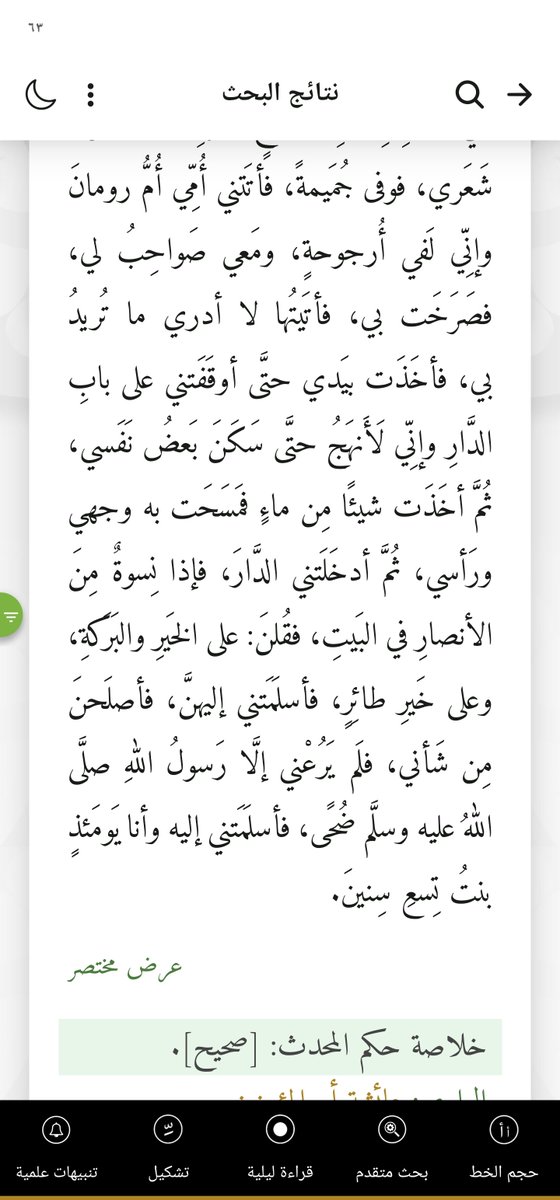 ٦٣
نتائج البحث
شَعَري، فوفى جُمَيمةً، فأتَتني أُمِّي أُمُّ رومانَ
وإنِّي لَفي أُرجوحةٍ، ومَعي صَواحِبُ لي،
فصَرَخَت بي، فأتَيتُها لا أدري ما تُريدُ
بي، فأخَذَت بيَدي حتَّى أوقَفَتني على بابِ
الدَّارِ وإنِّي لَأَنهَجُ حتَّى سَكَنَ بَعضُ نَفَسي،
ثُمَّ أخَذَت شيئًا مِن ماءٍ فمَسَحَت به وجهي
ورَأسي، ثُمَّ أدخَلَتني الدَّارَ، فإذا نِسوةٌ مِنَ
الأنصارِ في البَيتِ، فقُلنَ: على الخَيرِ والبَرَكةِ،
وعلى خَيرِ طائِرٍ، فأسلَمَتني إليهنَّ، فأصلَحنَ
مِن شَأني، فلَم يَرُعْني إلَّا رَسولُ اللهِ صلَّى
اللهُ عليه وسلَّم ضُحًى، فأسلَمَتني إليه وأنا يَومَئذٍ
بنتُ تِسعِ سِنينَ.
عرض مختصر
خلاصة حكم المحدث: [صحيح].
حجم الخط
بحث متقدم
قراءة ليلية
تشكيل
تنبيهات علمية